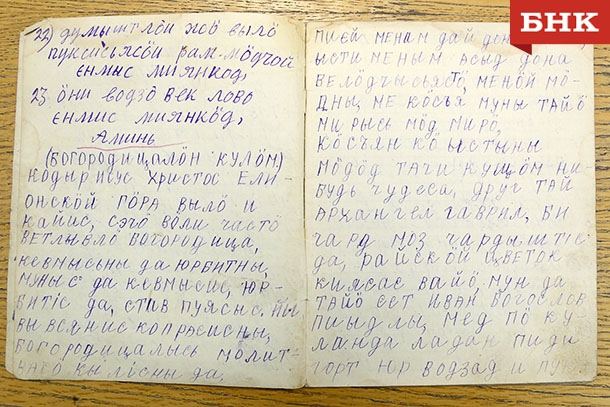 БНК
22) думыштлӧй жӧ вылӧ
пуксисьясӧй рам-мӧдчӧй
енмис миянкӧд,
23 ӧни водзӧ век лово
енмис миянкӧд,
Аминь
(БОГОРОДИЦАЛӦН КУЛӦМ)
КОДЫР ИСУС ХРИСТОС ЕЛИ-
ОНСКОЙ ГӦРА ВЫЛӦ И
КАЙИС, СЭЧӦ ВӦЛИ ЧАСТӦ
ВЕТЛЫВЛӦ БОГОРОДИЦА,
КЕВМЫСЬНЫ ДА ЮРБИТНЫ,
МУНЫС ДА КЕВМЫСИС, ЮР-
БИТІС ДА, СТАВ ПУЯСНС.
ВЫ ВОЯНИС КОПРАСИСНЫ,
БОГОРОДИЦАЛЫСЬ МОЛИТ-
КЫЛІСНЫ ДА,
ПИЕЙ МЕНАМ ДАЙ ДОН
ЫСТИ МЕНЫМ АСЫД ДОНА
ВЕЛӦДЧЫСЬЯСТӦ, МЕНӦЙ МӦ-
ДНЫ, МЕ КӦСЪЯ МУНЫ ТАЙӦ
МИ РЫСЬ МӦД МИРӦ,
КӦСЧЯН КӦ ЫСТЫНЫ
МӦДӦД ТАЧИ КУЩӦМ НИ-
БУДЬ ЧУДЕСА, ДРУГ ТАЙ
АРХАНГЕЛ ГАВРИЛ, БИ
ЧАРД МОЗ ЧАРДЫШТІС
ДА, РАЙСКОЙ ЦВЕТОК
КИЯСАС ВАЙӦ, МУН ДА
ТАЙӦ СЕТ ИВАН БОГОСЛОВ
ПИЫДЛЫ, МЕД ПӦ КУ-
ЛАНДА ЛАДАН ПИДИ
ГОРТ ЮР ВОДЗАД И